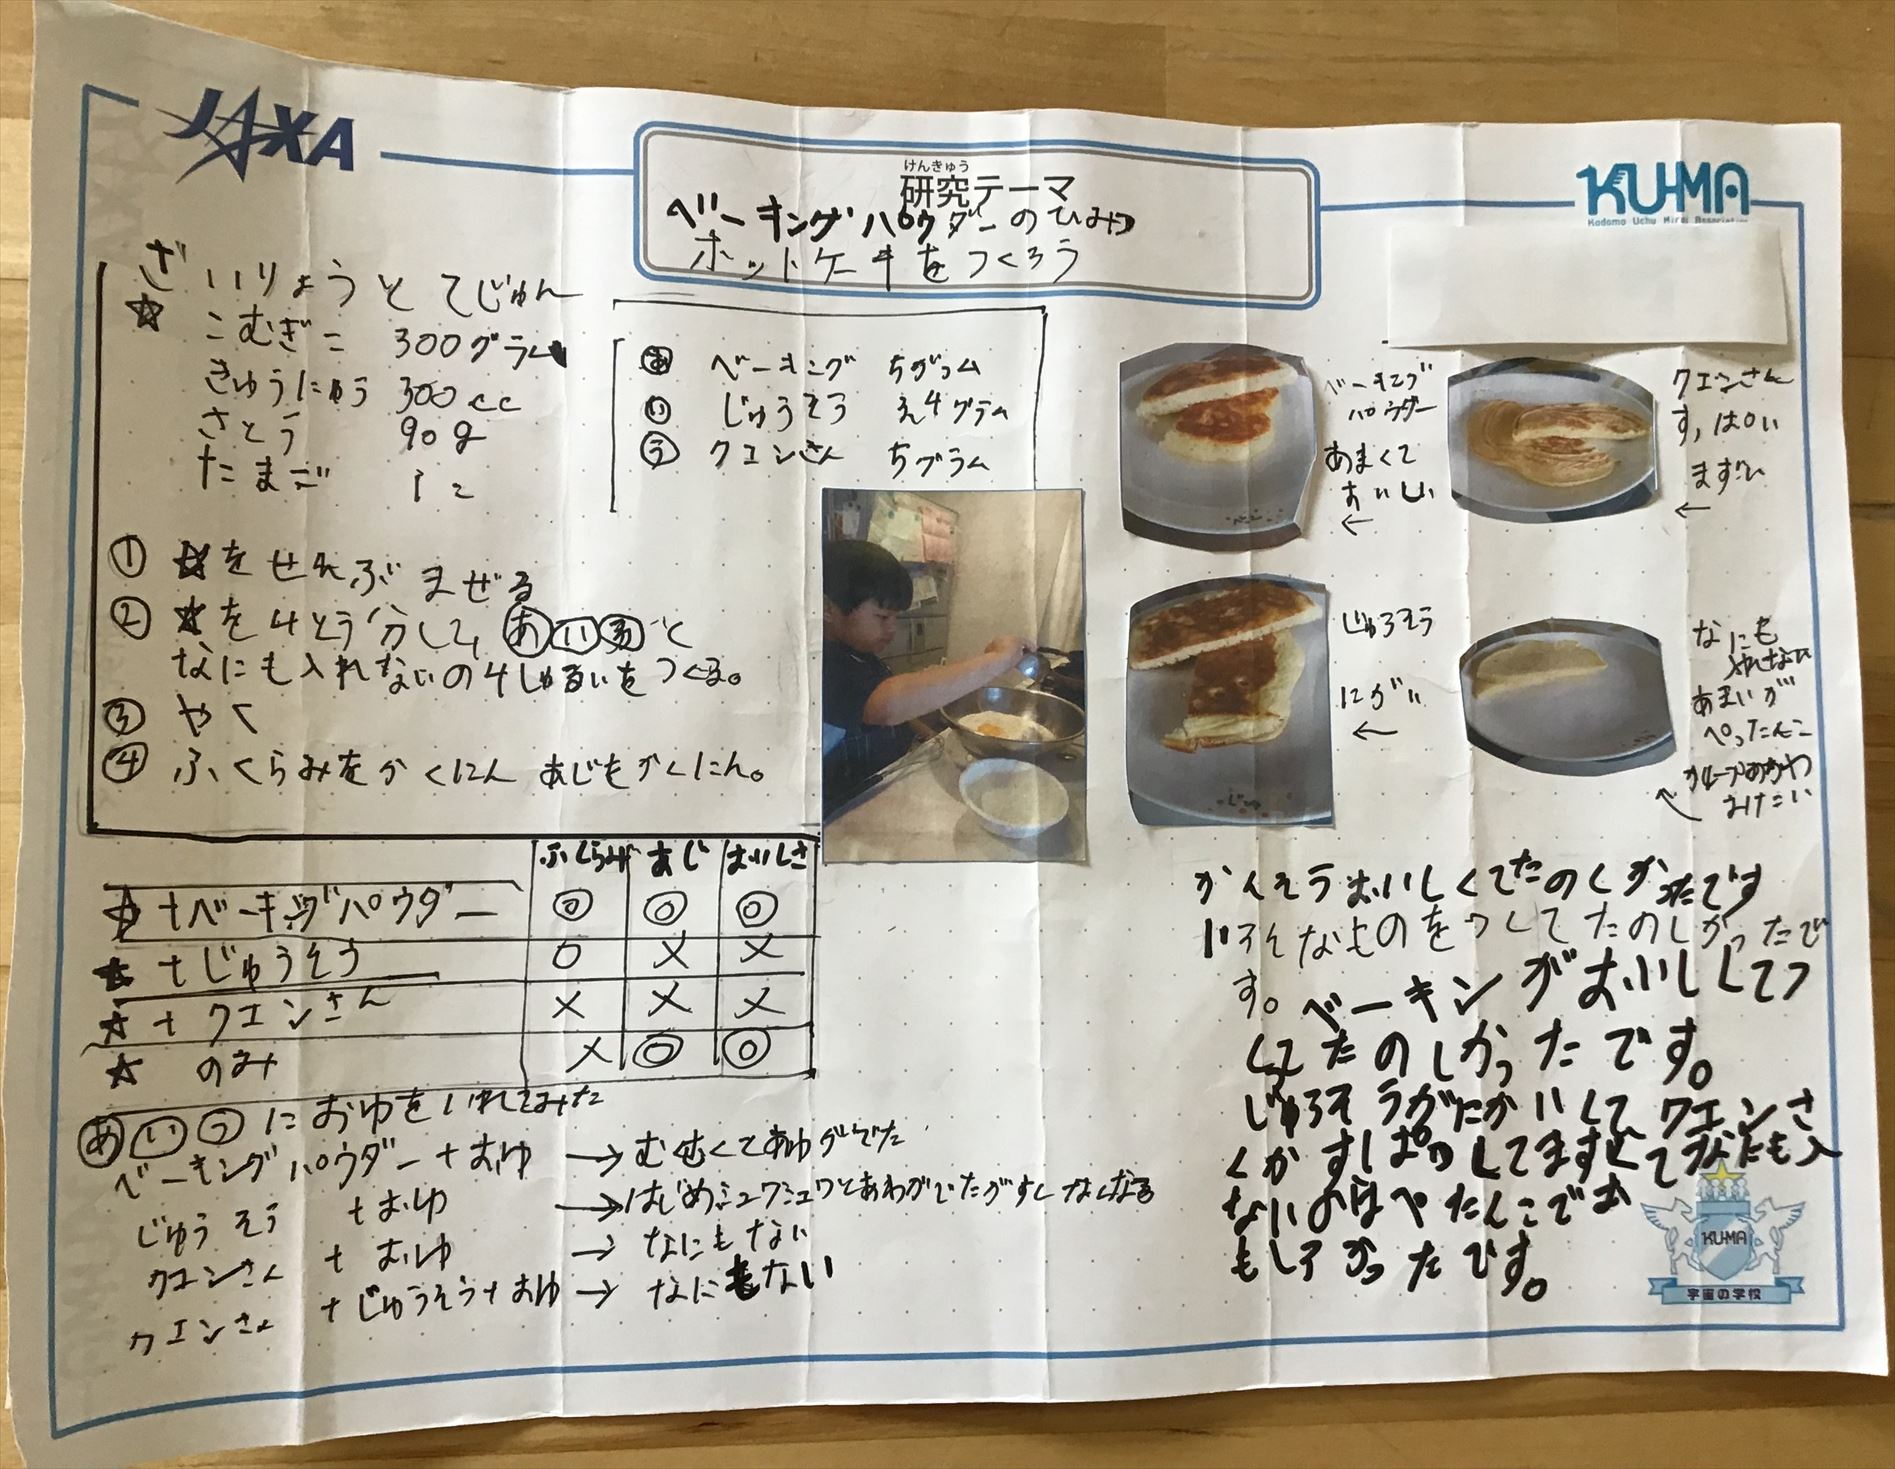 JAXA
けんきゅう
研究テーマ
ベーキングパウダーのひみつ
ホットケーキをつくろう
KU-MA
Kodomo Uchu Mirai Association
ざいりょうとてじゅん
☆
こむぎこ 300グラム
きゅうにゅう 300cc
さとう 90g
たまご 1こ
① ☆をせれぶまぜる
② ☆を4とう分して、あいうと
なにも入れないの4しゅるいをつくる。
③ やく
④ ふくらみをかくにん あじもかくにん。
あ ベーキング 5グラム
い じゅうそう 4グラム
う クエンさん 5グラム
ベーキング
パウダー
あまくて
おいしい
←
クエンさん
すっぱい
まずい
←
じゅうそう
にがい
←
なにも
いれない
あまいが
ぺったんこ
ふくらみ あじ おいしさ
☆+ベーキングパウダー ◎ ◎ ◎
☆+じゅうそう ○ × ×
☆+クエンさん × × ×
☆のみ × ◎ ◎
あいうにおゆをいれてみた
ベーキングパウダー+おゆ →
じゅうそう +おゆ → はじめシュワシュワとあわがでたがすぐなくなる
クエンさん + おゆ → なにもない
クエンさん +じゅうそう+おゆ → なにもない
かんそうおいしくてたのしかったです
いろんなものをつくってたのしかったで
す。ベーキングがおいしくてつ
くってたのしかったです。
クエンさ
ないのはぺたんこでお
もしろかったです。
KU-MA
宇宙の学校